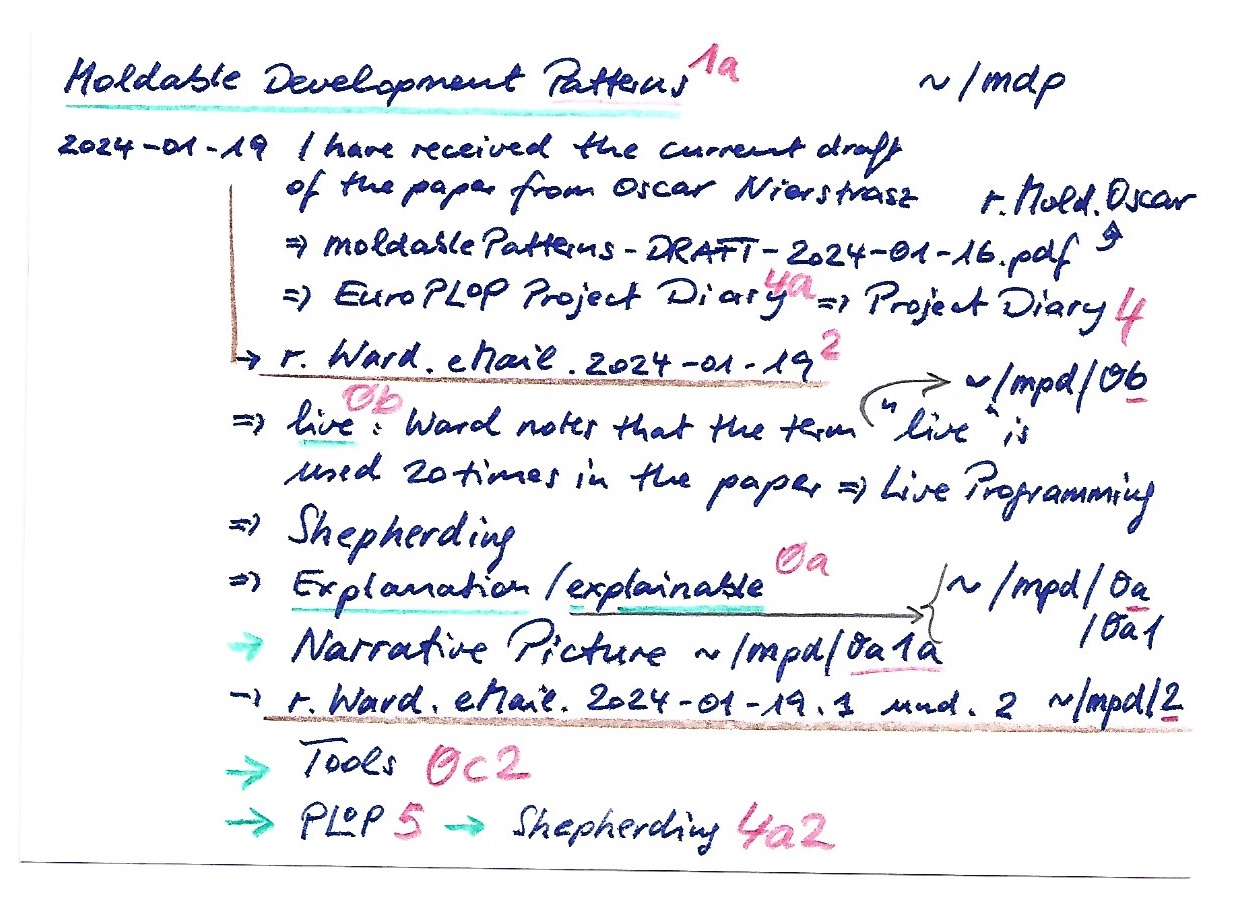 Moldable Development Patterns 1a ~/mdp
2024-01-19 I have received the current draft
of the paper from Oscar Nierstrasz r. Mold. Oscar
=> moldablePatterns-DRAFT-2024-01-16.pdf
=> EuroPLoP Project Diary 4a => Project Diary 4
→ r. Ward. eMail. 2024-01-19 2
~/mpd/0b
=> live 0b : Ward notes that the term "live" is
used 20 times in the paper => Live Programming
=> Shepherding
=> Explanation / explainable 0a ~/mpd/0a
/0a1
→ Narrative Picture ~/mpd/0a1a
→ r. Ward. eMail. 2024-01-19.1 und. 2 ~/mpd/2
→ Tools 0c2
→ PLoP 5 → Shepherding 4a2